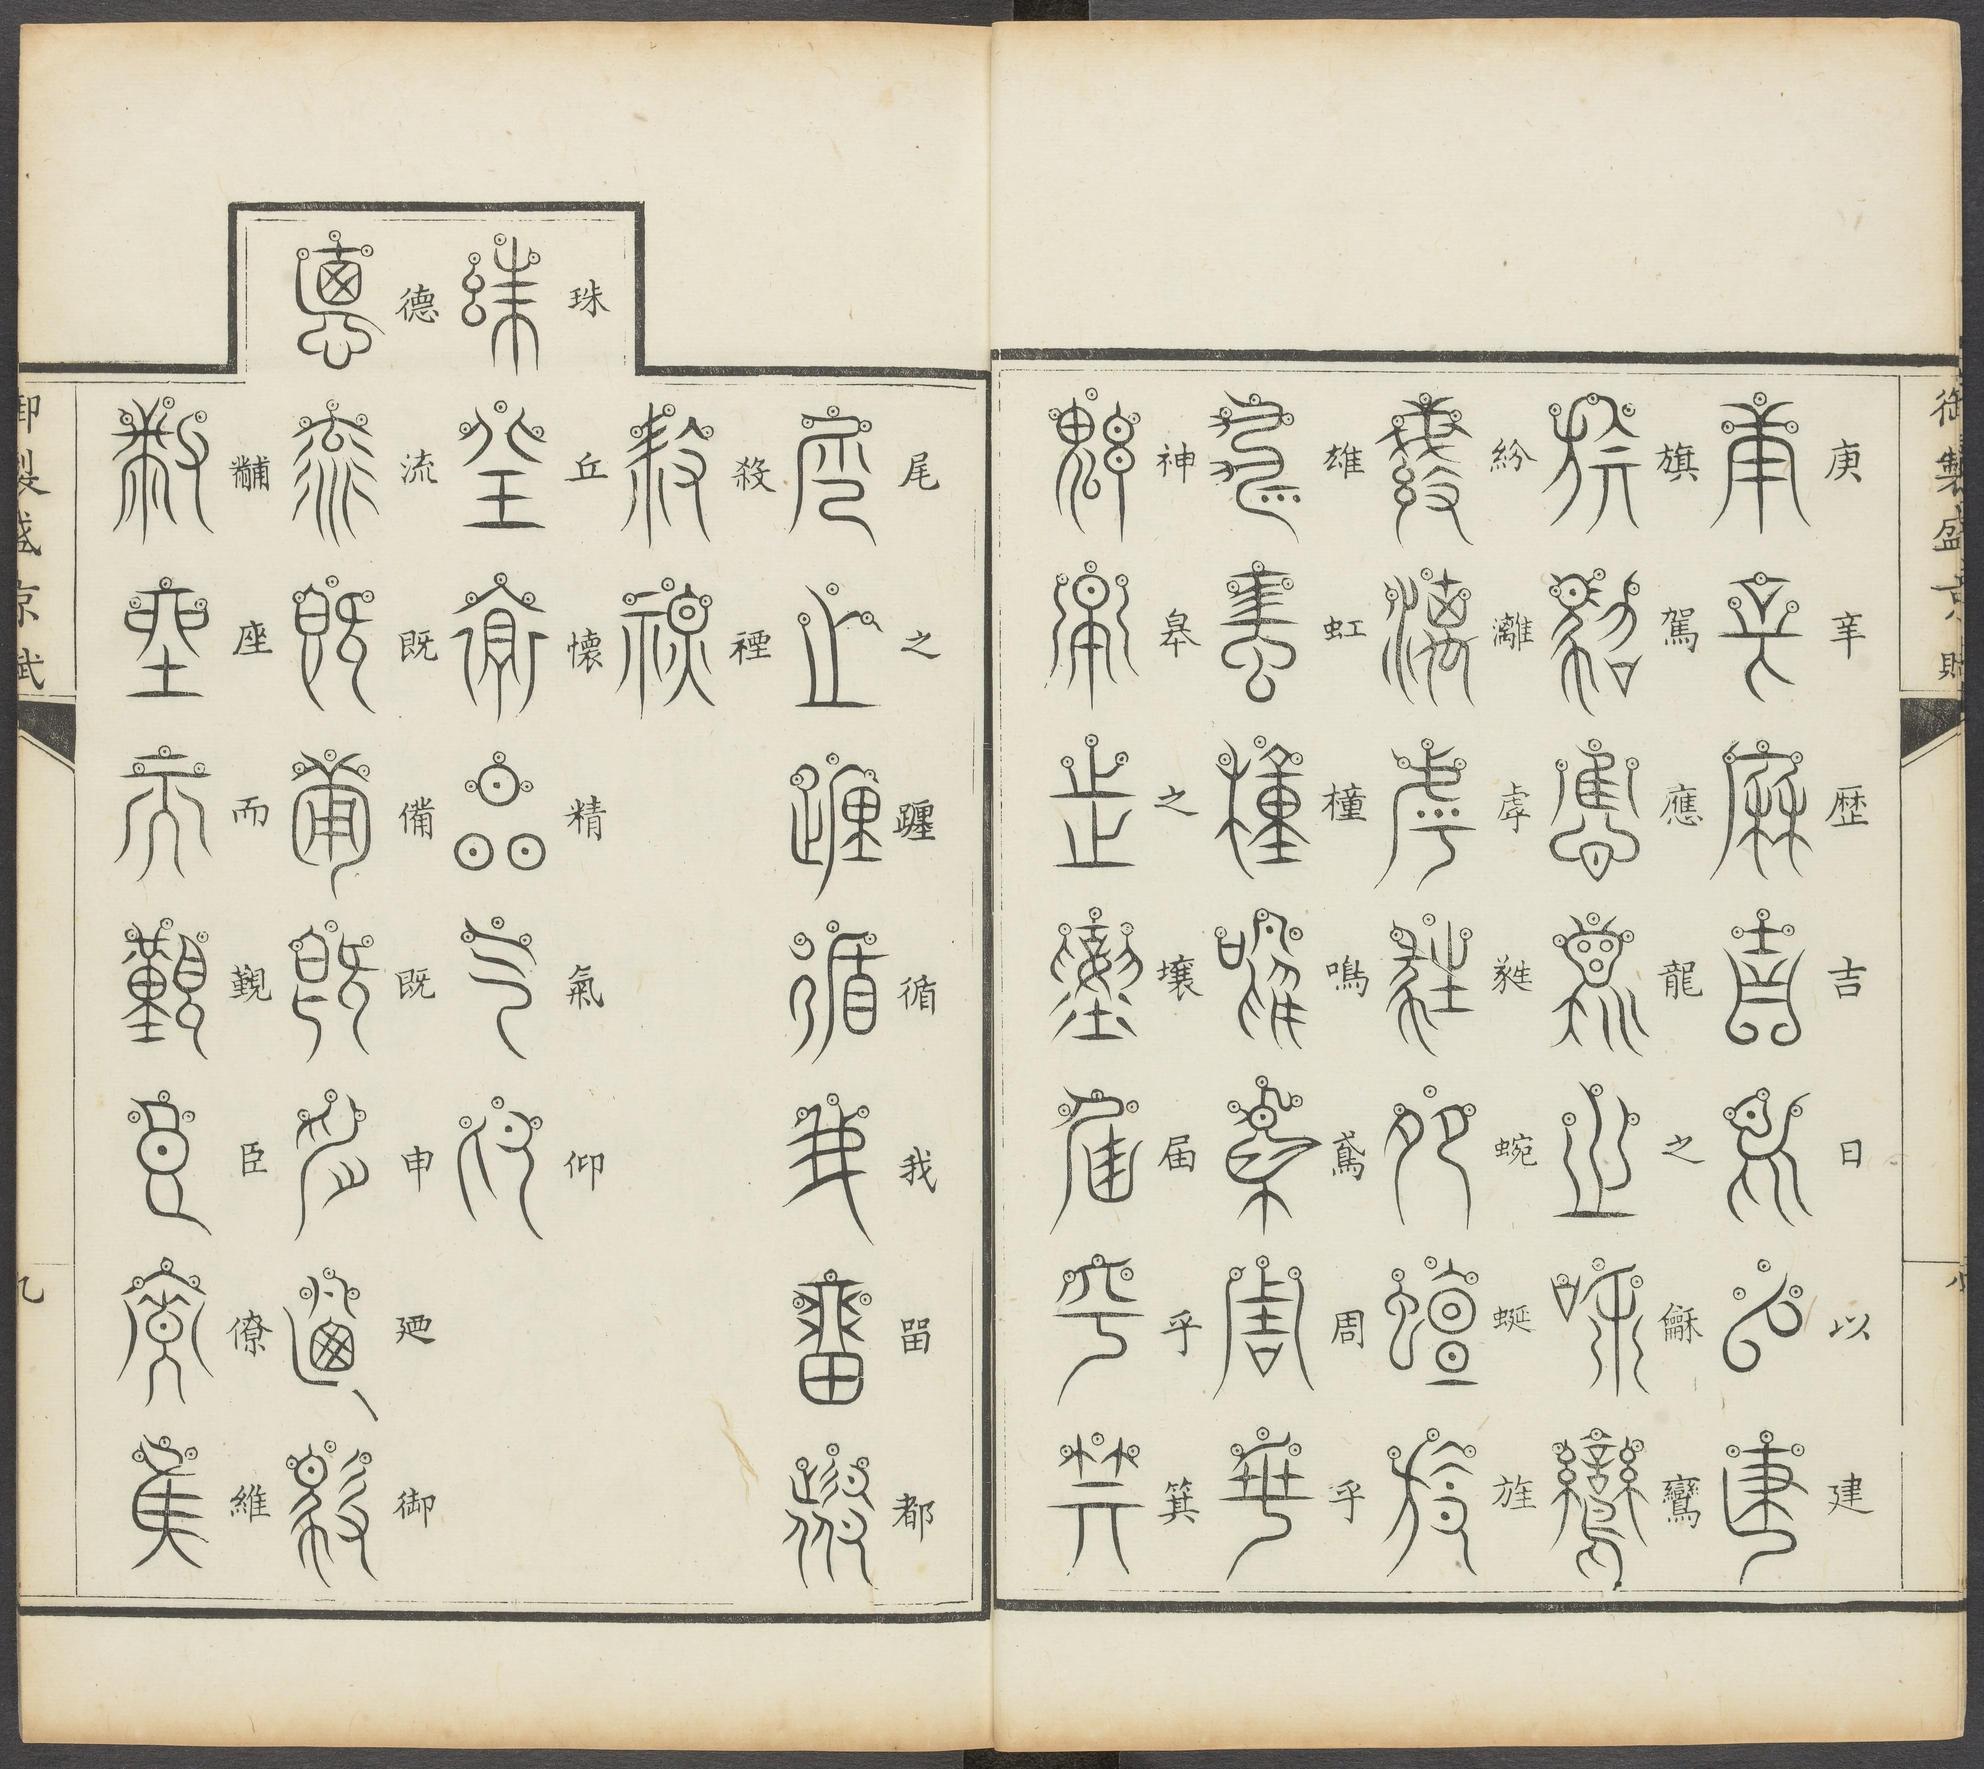 御製盛京賦
庚辛歴吉日以建
旗駕應龍之龢鸞
紛灕虖蕤蜿蜒旌
雄虹橦鳴鳶周乎
神皋之壤届乎箕
尾之躔循我畱都
殺禋
珠丘懷精氣仰
德流既備既申廼御
黼座而覲臣僚維
御製盛京賦
九